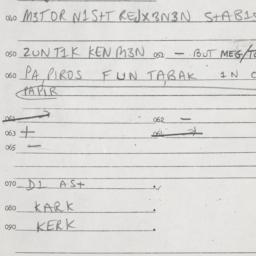 040 M3TOR N1S+T RE X3N3N S+AB1S
050 ZUNT1K KEN M3N 051 — BUT MEG/TO
060 PA,PIROS FUN TABAK 1N O
PAPIR
061 062 —
063 + 064
065 —
070 D1 AS+
080 KARK
090 KERK